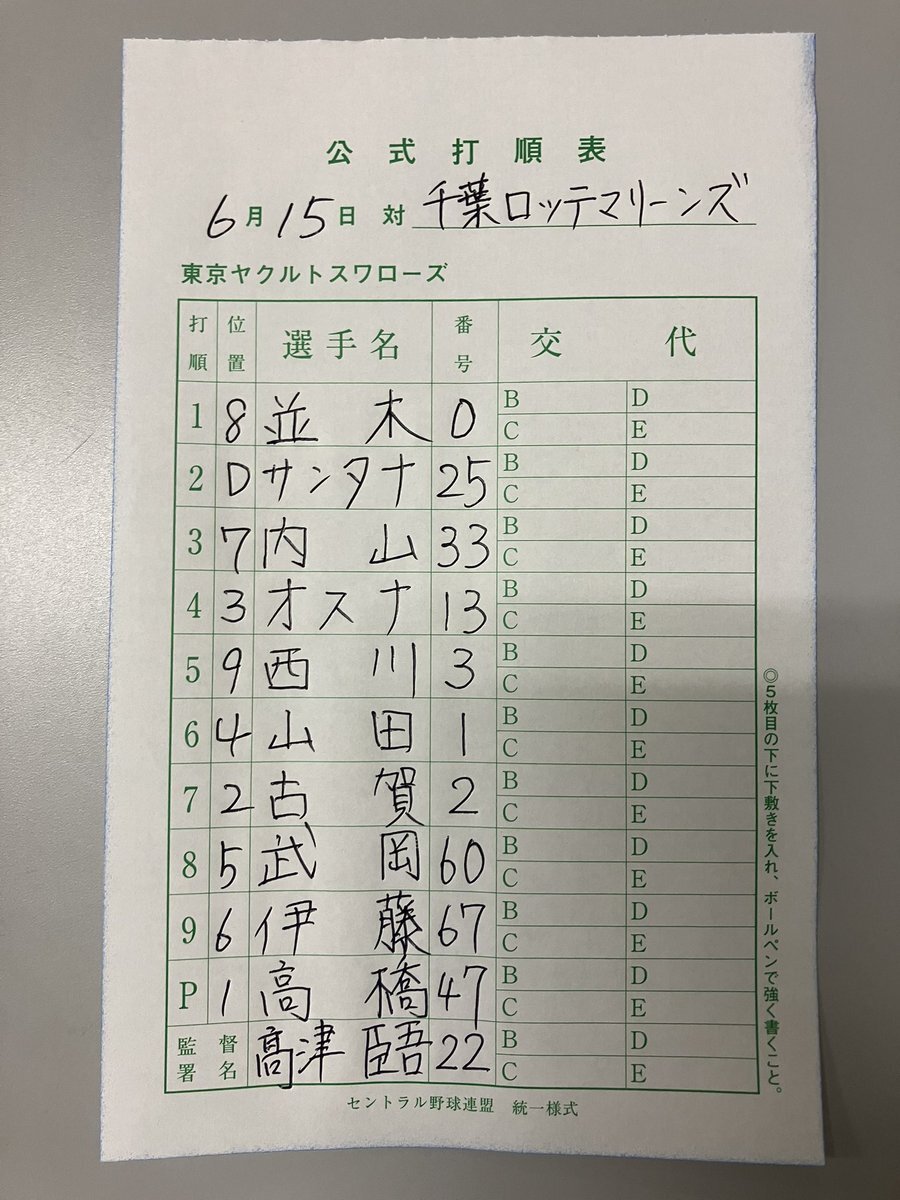 公式打順表
6月15日 対 千葉ロッテマリーンズ
東京ヤクルトスワローズ
打順 位置 選手名 番号 交代
1 8 並木 0 B D C E
2 D サンタナ 25 B D C E
3 7 内山 33 B D C E
4 3 オスナ 13 B D C E
5 9 西川 3 B D C E
6 4 山田 1 B D C E
7 2 古賀 2 B D C E
8 5 武岡 60 B D C E
9 6 伊藤 67 B D C E
P 1 高橋 47 B D C E
監督署名 髙津臣吾 22 B D C E
セントラル野球連盟 統一様式
◎5枚目の下に下敷きを入れ、ボールペンで強く書くこと。